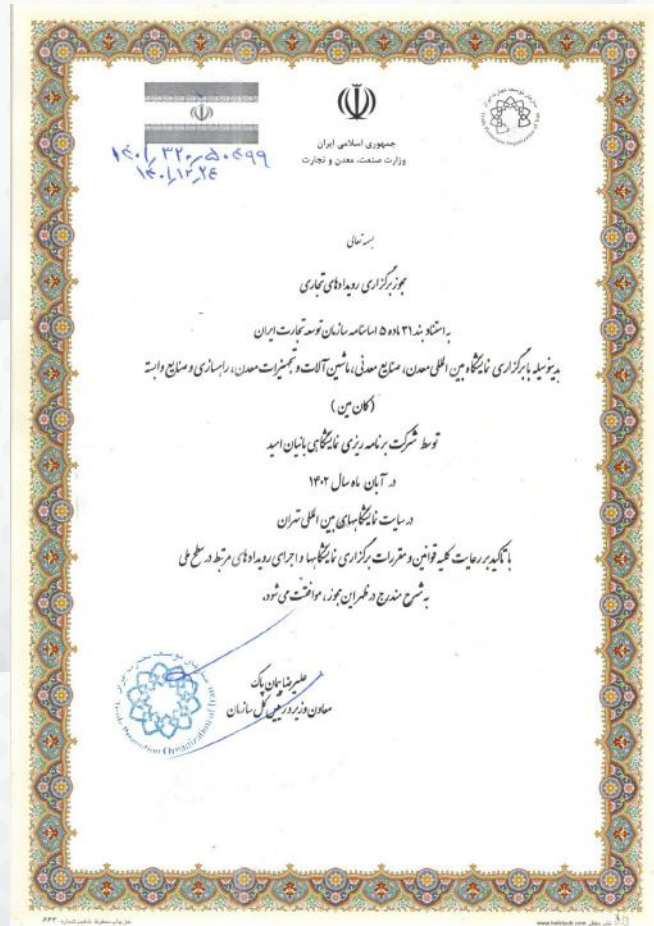 جمهوری اسلامی ایران
وزارت صنعت، معدن و تجارت
۱۴۰۱/۱۲/۲۴
بسمه تعالی
مجوز برگزاری رویدادهای تجاری
به استناد بند ۳۱ ماده ۵ اساسنامه سازمان توسعه تجارت ایران
بدینوسیله با برگزاری نمایشگاه بین المللی معدن، صنایع معدنی، ماشین آلات و تجهیزات معدن، راهسازی و صنایع وابسته
(کان مین)
توسط شرکت برنامه ریزی نمایشگاهی بانیان امید
در آبان ماه سال ۱۴۰۲
در سایت نمایشگاههای بین المللی تهران
با تاکید بر رعایت کلیه قوانین و مقررات برگزاری نمایشگاهها و اجرای رویدادهای مرتبط در سطح ملی
به شرح مندرج در ظهر این مجوز، موافقت می شود.
علیرضا پیمان پاک
معاون وزیر و رئیس کل سازمان
Trade Promotion Organization of Iran
www.hattlash.com